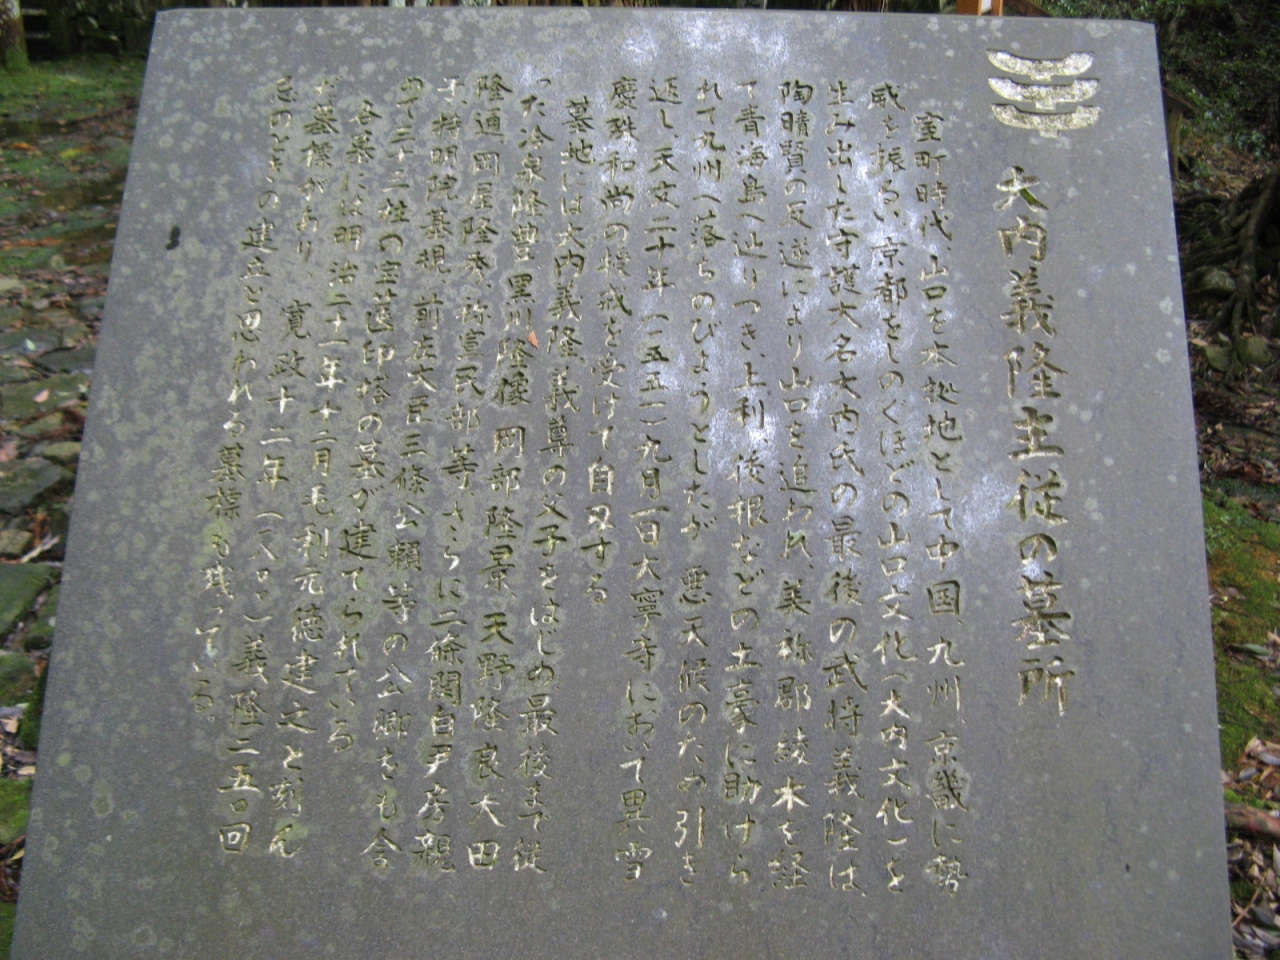 大内義隆主従の墓所
室町時代、山口を本拠地として中国、九州、京畿に勢
威を振るい、京都をしのぐほどの山口文化(大内文化)を
生み出した守護大名大内氏の最後の武将義隆は、
陶晴賢の反逆により山口を追われ、美祢郡綾木を経
て青海島へ辿りつき、上利、後根などの土豪に助けら
れて九州へ落ちのびようとしたが、悪天候のため引き
返し、天文二十年(一五五一)九月一日大寧寺において異雪
慶殊和尚の授戒を受けて自刃する
墓地には大内義隆、義尊の父子をはじめ最後まで従
った冷泉隆豊、黒川隆像、岡部隆景、天野隆良、大田
隆通、岡屋隆秀、祢宜民部等、さらに二條関白尹房親
子、持明院基規、前左大臣三條公頼等の公卿をも含
めて三十二柱の宝篋印塔の墓が建てられている
各墓には明治二十一年十二月毛利元徳建之と刻ん
だ墓標があり、寛政十二年(一八〇〇)義隆二五〇回
忌のときの建立と思われる墓標も残っている。